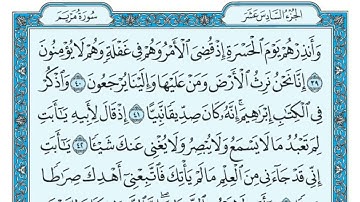 الجزء السادس عشر سورة مريم
وَأَنذِرْهُمْ يَوْمَ ٱلْحَسْرَةِ إِذْ قُضِىَ ٱلْأَمْرُ وَهُمْ فِى غَفْلَةٍ وَهُمْ لَا يُؤْمِنُونَ
٣٩ إِنَّا نَحْنُ نَرِثُ ٱلْأَرْضَ وَمَنْ عَلَيْهَا وَإِلَيْنَا يُرْجَعُونَ ٤٠ وَٱذْكُرْ
فِى ٱلْكِتَٰبِ إِبْرَٰهِيمَ إِنَّهُۥ كَانَ صِدِّيقًا نَّبِيًّا ٤١ إِذْ قَالَ لِأَبِيهِ يَٰٓأَبَتِ
لِمَ تَعْبُدُ مَا لَا يَسْمَعُ وَلَا يُبْصِرُ وَلَا يُغْنِى عَنكَ شَيْـًٔا ٤٢ يَٰٓأَبَتِ
إِنِّى قَدْ جَآءَنِى مِنَ ٱلْعِلْمِ مَا لَمْ يَأْتِكَ فَٱتَّبِعْنِىٓ أَهْدِكَ صِرَٰطًا